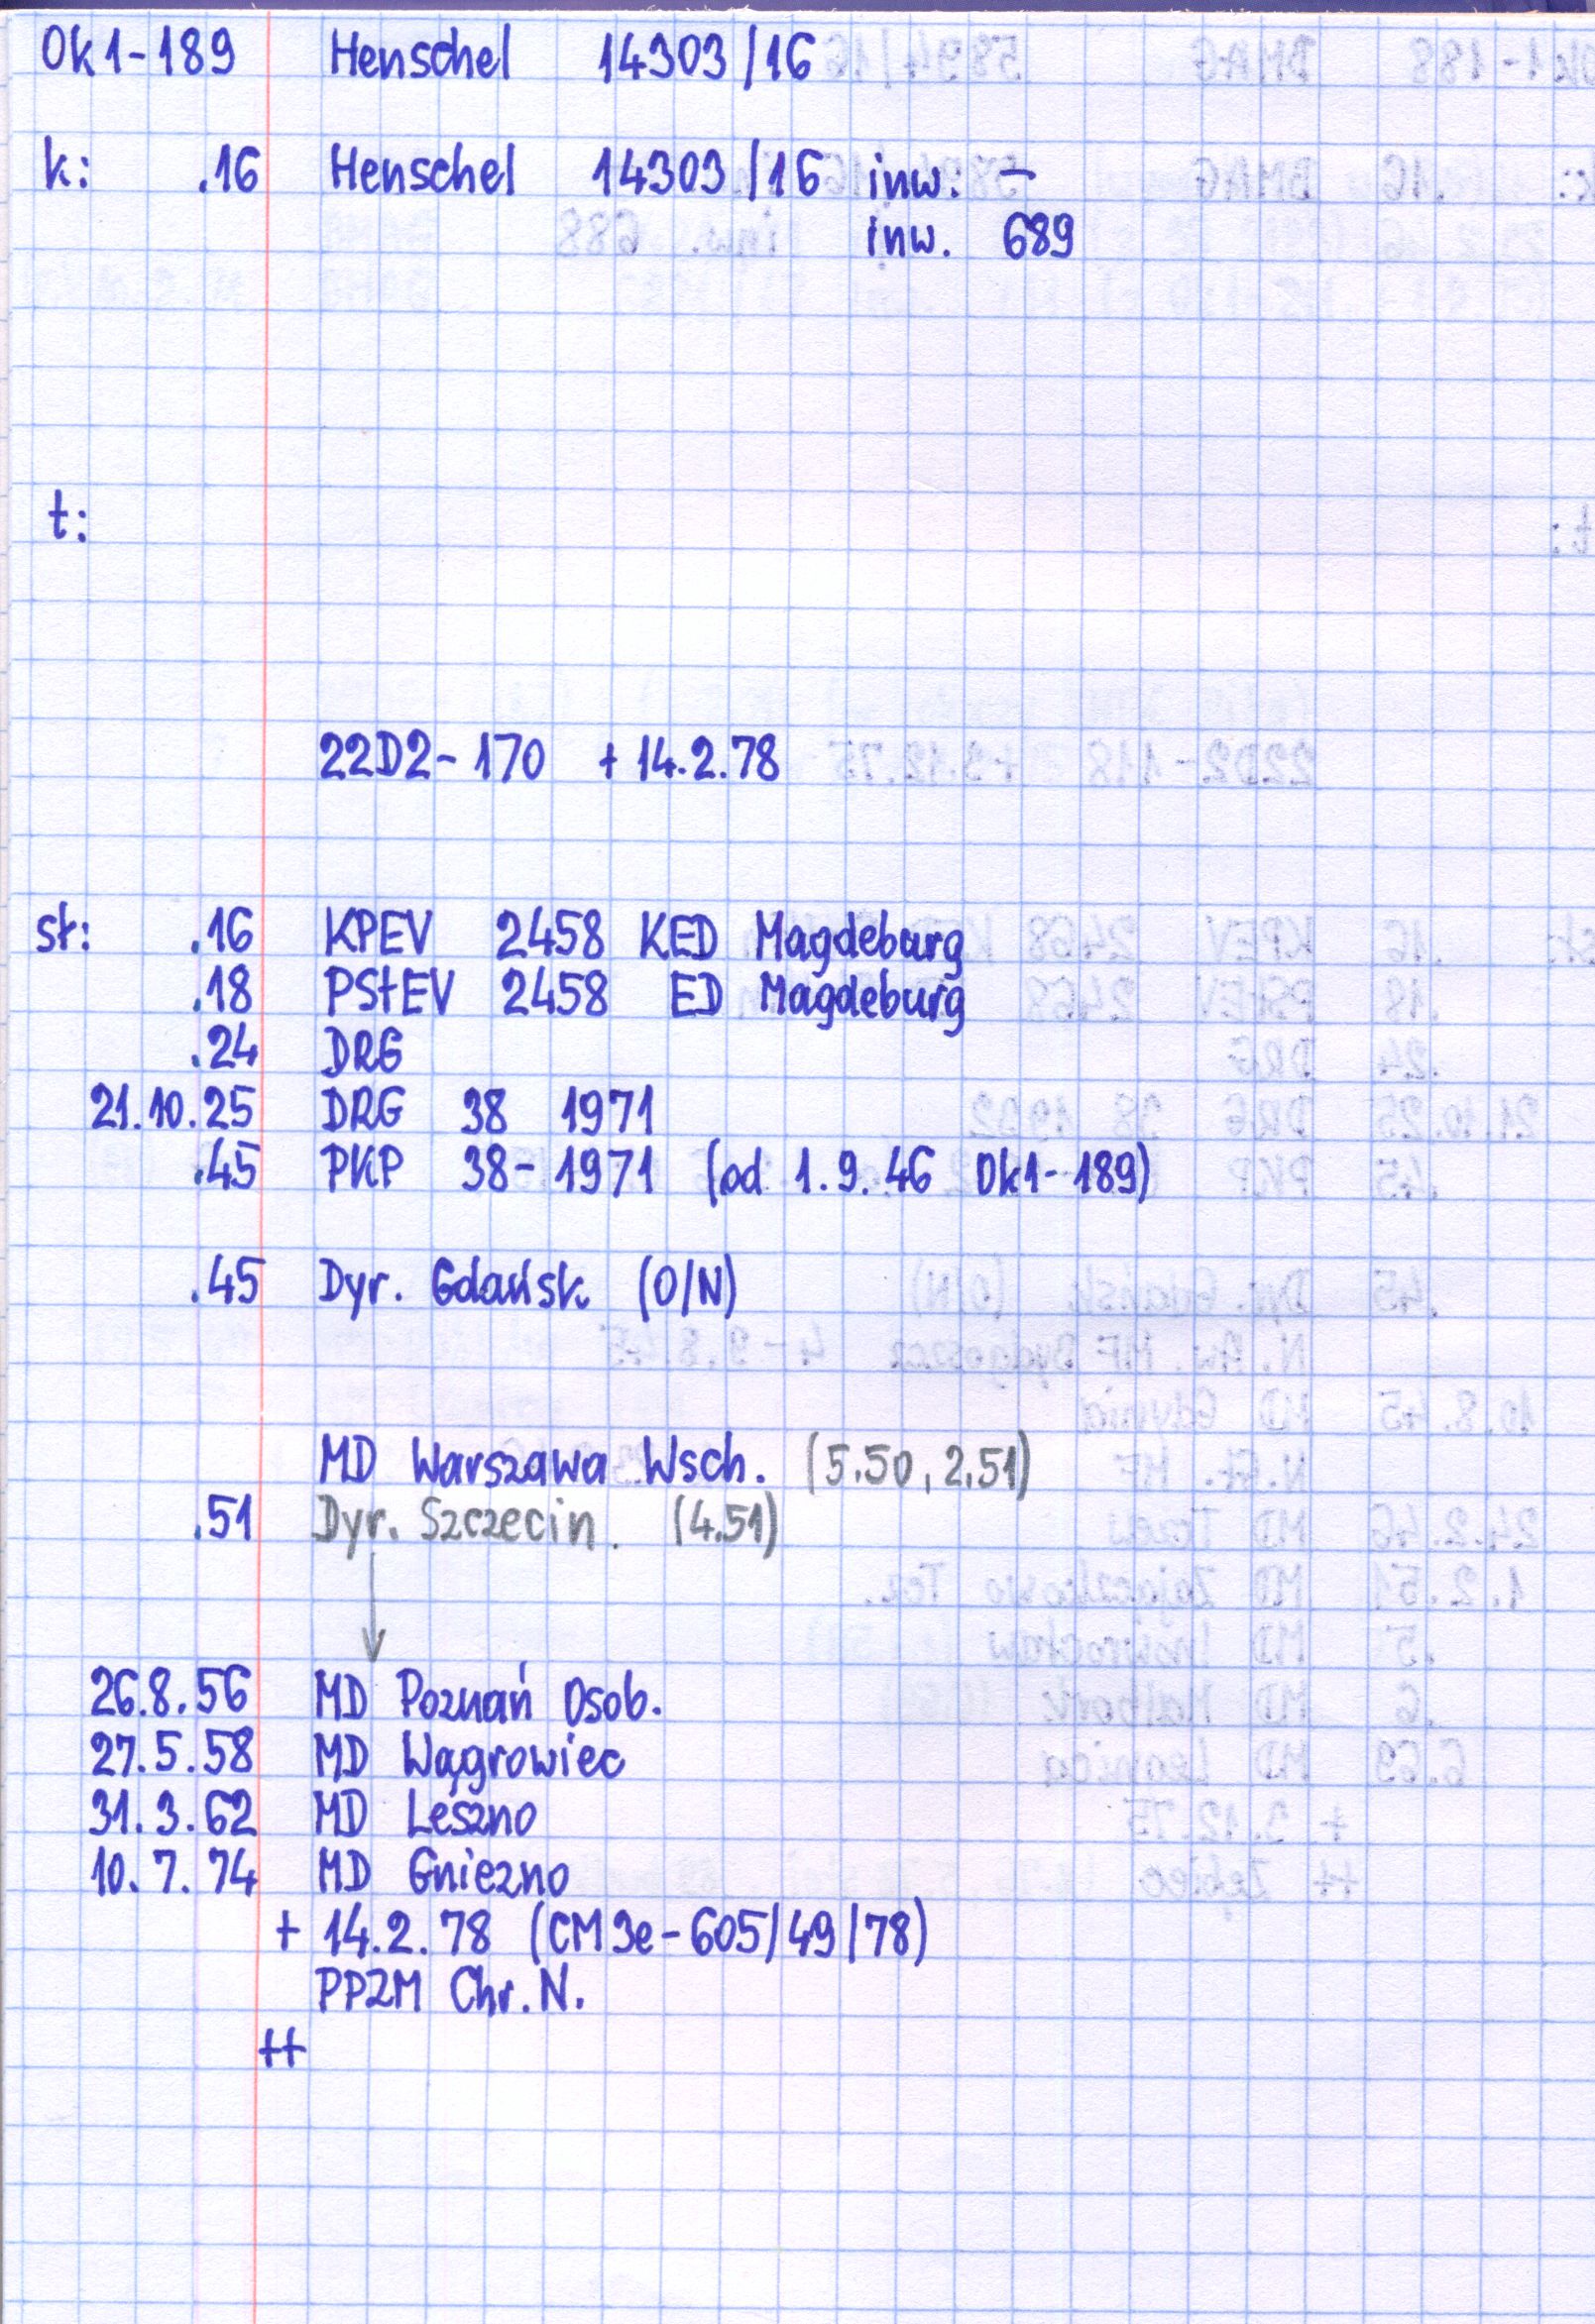 Ok1-189 Henschel 14303/16
k: .16 Henschel 14303/16 inw. -
inw. 689
t:
22D2-170 + 14.2.78
st: .16 KPEV 2458 KED Magdeburg
.18 PStEV 2458 ED Magdeburg
.24 DRG
21.10.25 DRG 38 1971
.45 PKP 38-1971 (od 1.9.46 Ok1-189)
.45 Dyr. Gdańsk (O/N)
MD Warszawa Wsch. (5.50, 2.51)
.51 Dyr. Szczecin. (4.51)
26.8.56 MD Poznań Osob.
27.5.58 MD Wągrowiec
31.3.62 MD Leszno
10.7.74 MD Gniezno
+ 14.2.78 (CM3e-605/49/78)
PPZM Chr. N.
++